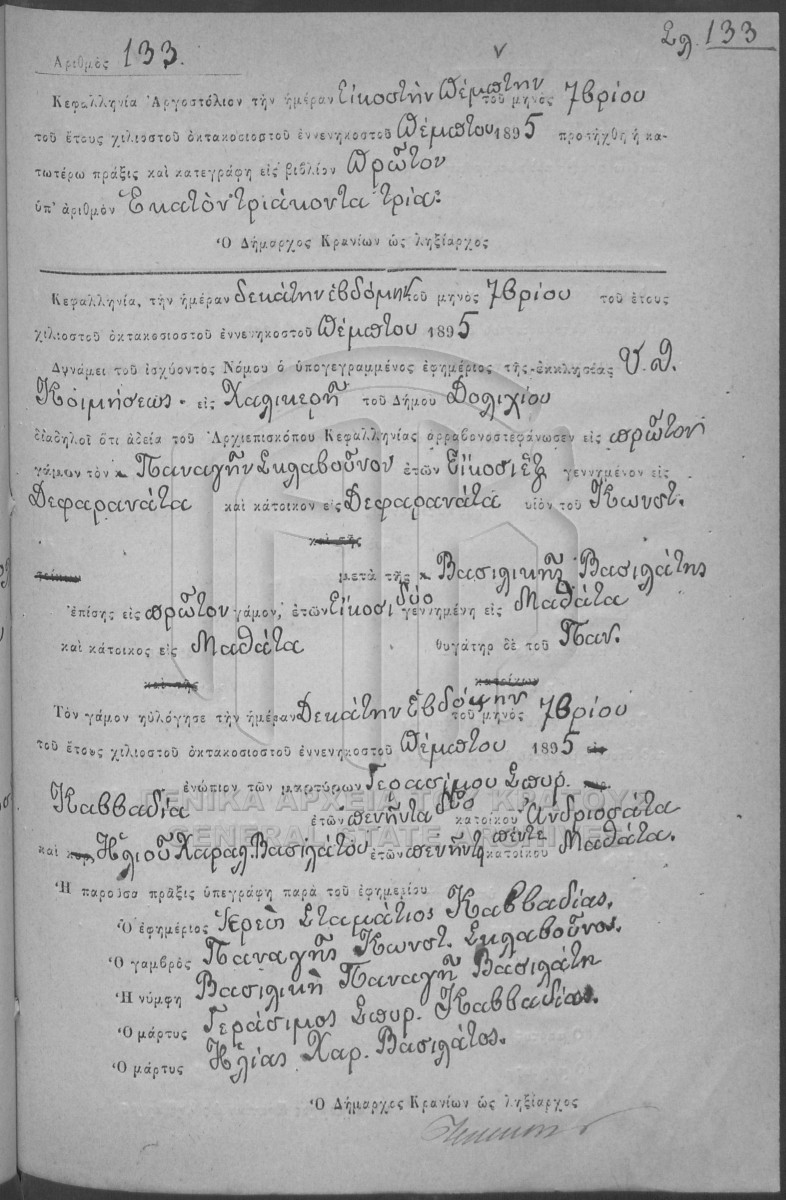 Σλ. 133
Αριθμὸς 133.
Κεφαλληνία Ἀργοστόλιον τὴν ἡμέραν Εἰκοστὴν Πέμπτην τοῦ μηνὸς 7βρίου
τοῦ ἔτους χιλιοστοῦ ὀκτακοσιοστοῦ ἐννενηκοστοῦ Πέμπτου 1895 προσήχθη ἡ κα-
τωτέρω πρᾶξις καὶ κατεγράφη εἰς βιβλίον Πρῶτον
ὑπ' ἀριθμὸν Ἑκατὸν τριάκοντα τρία:
Ὁ Δήμαρχος Κρανίων ὡς ληξίαρχος
Κεφαλληνία, τὴν ἡμέραν δεκάτην ἑβδόμην τοῦ μηνὸς 7βρίου τοῦ ἔτους
χιλιοστοῦ ὀκτακοσιοστοῦ ἐννενηκοστοῦ Πέμπτου 1895
Δυνάμει τοῦ ἰσχύοντος Νόμου ὁ ὑπογεγραμμένος ἐφημέριος τῆς ἐκκλησίας Υ. Θ.
Κοιμήσεως. εἰς Χαλικερῆ τοῦ Δήμου Δολιχίου
διαδηλοῖ ὅτι ἀδείᾳ τοῦ Ἀρχιεπισκόπου Κεφαλληνίας ἀρραβονοστεφάνωσεν εἰς πρῶτον
γάμον τὸν Παναγῆν Σκλαβοῦνον ἐτῶν Εἰκοσιὲξ γεννημένον εἰς
Δεφαρανάτα καὶ κάτοικον εἰς Δεφαρανάτα υἱὸν τοῦ Κωνστ.
καὶ τῆς
τοίκων μετὰ τῆς Βασιλικῆς Βασιλάτης
ἐπίσης εἰς πρῶτον γάμον, ἐτῶν Εἴκοσι δύο γεννημένη εἰς Μαθάτα
καὶ κάτοικος εἰς Μαθάτα θυγάτηρ δὲ τοῦ Παν.
καὶ τῆς κατοίκων
Τὸν γάμον ηὐλόγησε τὴν ἡμέραν Δεκάτην Ἑβδόμην τοῦ μηνὸς 7βρίου
τοῦ ἔτους χιλιοστοῦ ὀκτακοσιοστοῦ ἐννενηκοστοῦ Πέμπτου 1895
ἐνώπιον τῶν μαρτύρων Γερασίμου Σπυρ.
Καββαδία ἐτῶν πενῆντα δύο κατοίκου Ἀνδριοσάτα
καὶ Ἠλιοῦ Χαραλ. Βασιλάτου ἐτῶν πενῆντα πέντε κατοίκου Μαθάτα.
Ἡ παροῦσα πρᾶξις ὑπεγράφη παρὰ τοῦ ἐφημερίου
Ὁ ἐφημέριος Ἱερεὺς Σταμάτιος Καββαδίας.
Ὁ γαμβρὸς Παναγῆς Κωνστ. Σκλαβοῦνος.
Ἡ νύμφη Βασιλικὴ Παναγῆ Βασιλάτη
Ὁ μάρτυς Γεράσιμος Σπυρ. Καββαδίας.
Ὁ μάρτυς Ἠλίας Χαρ. Βασιλάτος.
Ὁ Δήμαρχος Κρανίων ὡς ληξίαρχος
ΓΕΝΙΚΑ ΑΡΧΕΙΑ ΤΟΥ ΚΡΑΤΟΥΣ
GENERAL STATE ARCHIVES